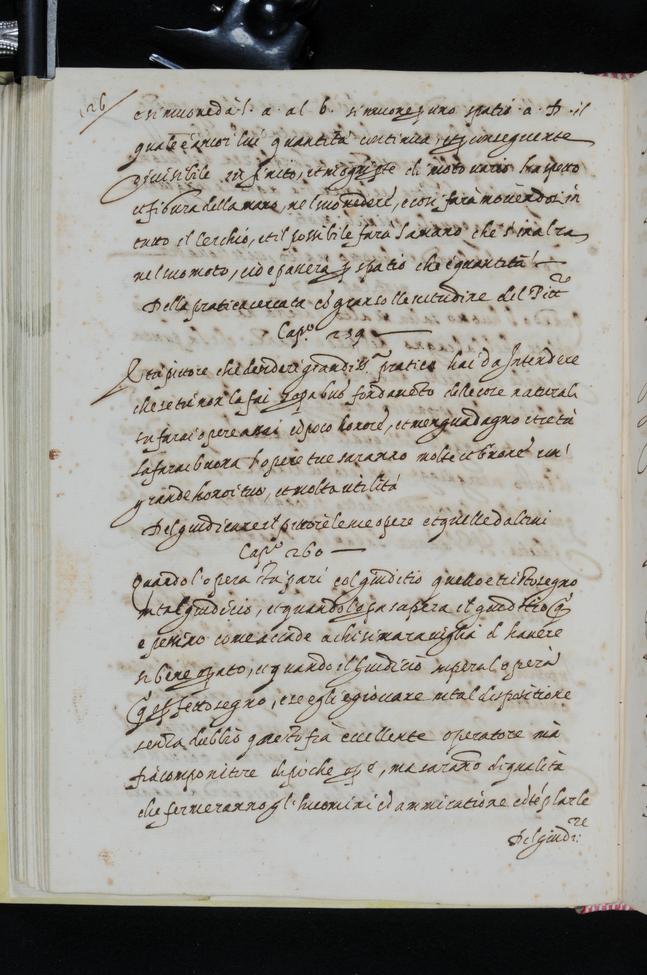 126
e si muove dà l. a. al b. si muove p uno spatio a. b. il
quale è ancor lui quantità continua, et p conseguente
divisibile in infinito, et in ogni pte di moto vario ha
figura della mano, nel suo vedere, e così farà movendosi in
tutto il cerchio, et il possibile farà la mano che s'inalza
nel suo moto, cioè passerà p spatio che è quantità
Della pratica cercata cō gran sollecitudine del Pittre
Capo 259
Et tu pittore che desideri grandissma pratica hai da Intendere
che se tu non la fai sopa buo fondamēto delle cose naturali
tu farai opere assai cō poco honore, et men guadagno et se tù
la farai buona l'opere tue saranno molte et buone con
grande honor tuo, et molta utilità
Del giudicare il pittore le sue opere et quelle d'altrui
Capo 260
Quando l'opera sta pari col giuditio quello è tristo segno
in tal giudicio, et quando l'opa supera il giuditio
è pessimo come accade a chi si maraviglia d'havere
si bene opato, et quando il Giudicio supera l'opera
qsto è pfetto segno, e se egli è giovane in tal dispositione
senza dubbio questo fia eccellente operatore mà
fia componitore di poche ope, ma sarano di qualità
che fermeranno gl'huomini cō ammiratione
Del giudi:re